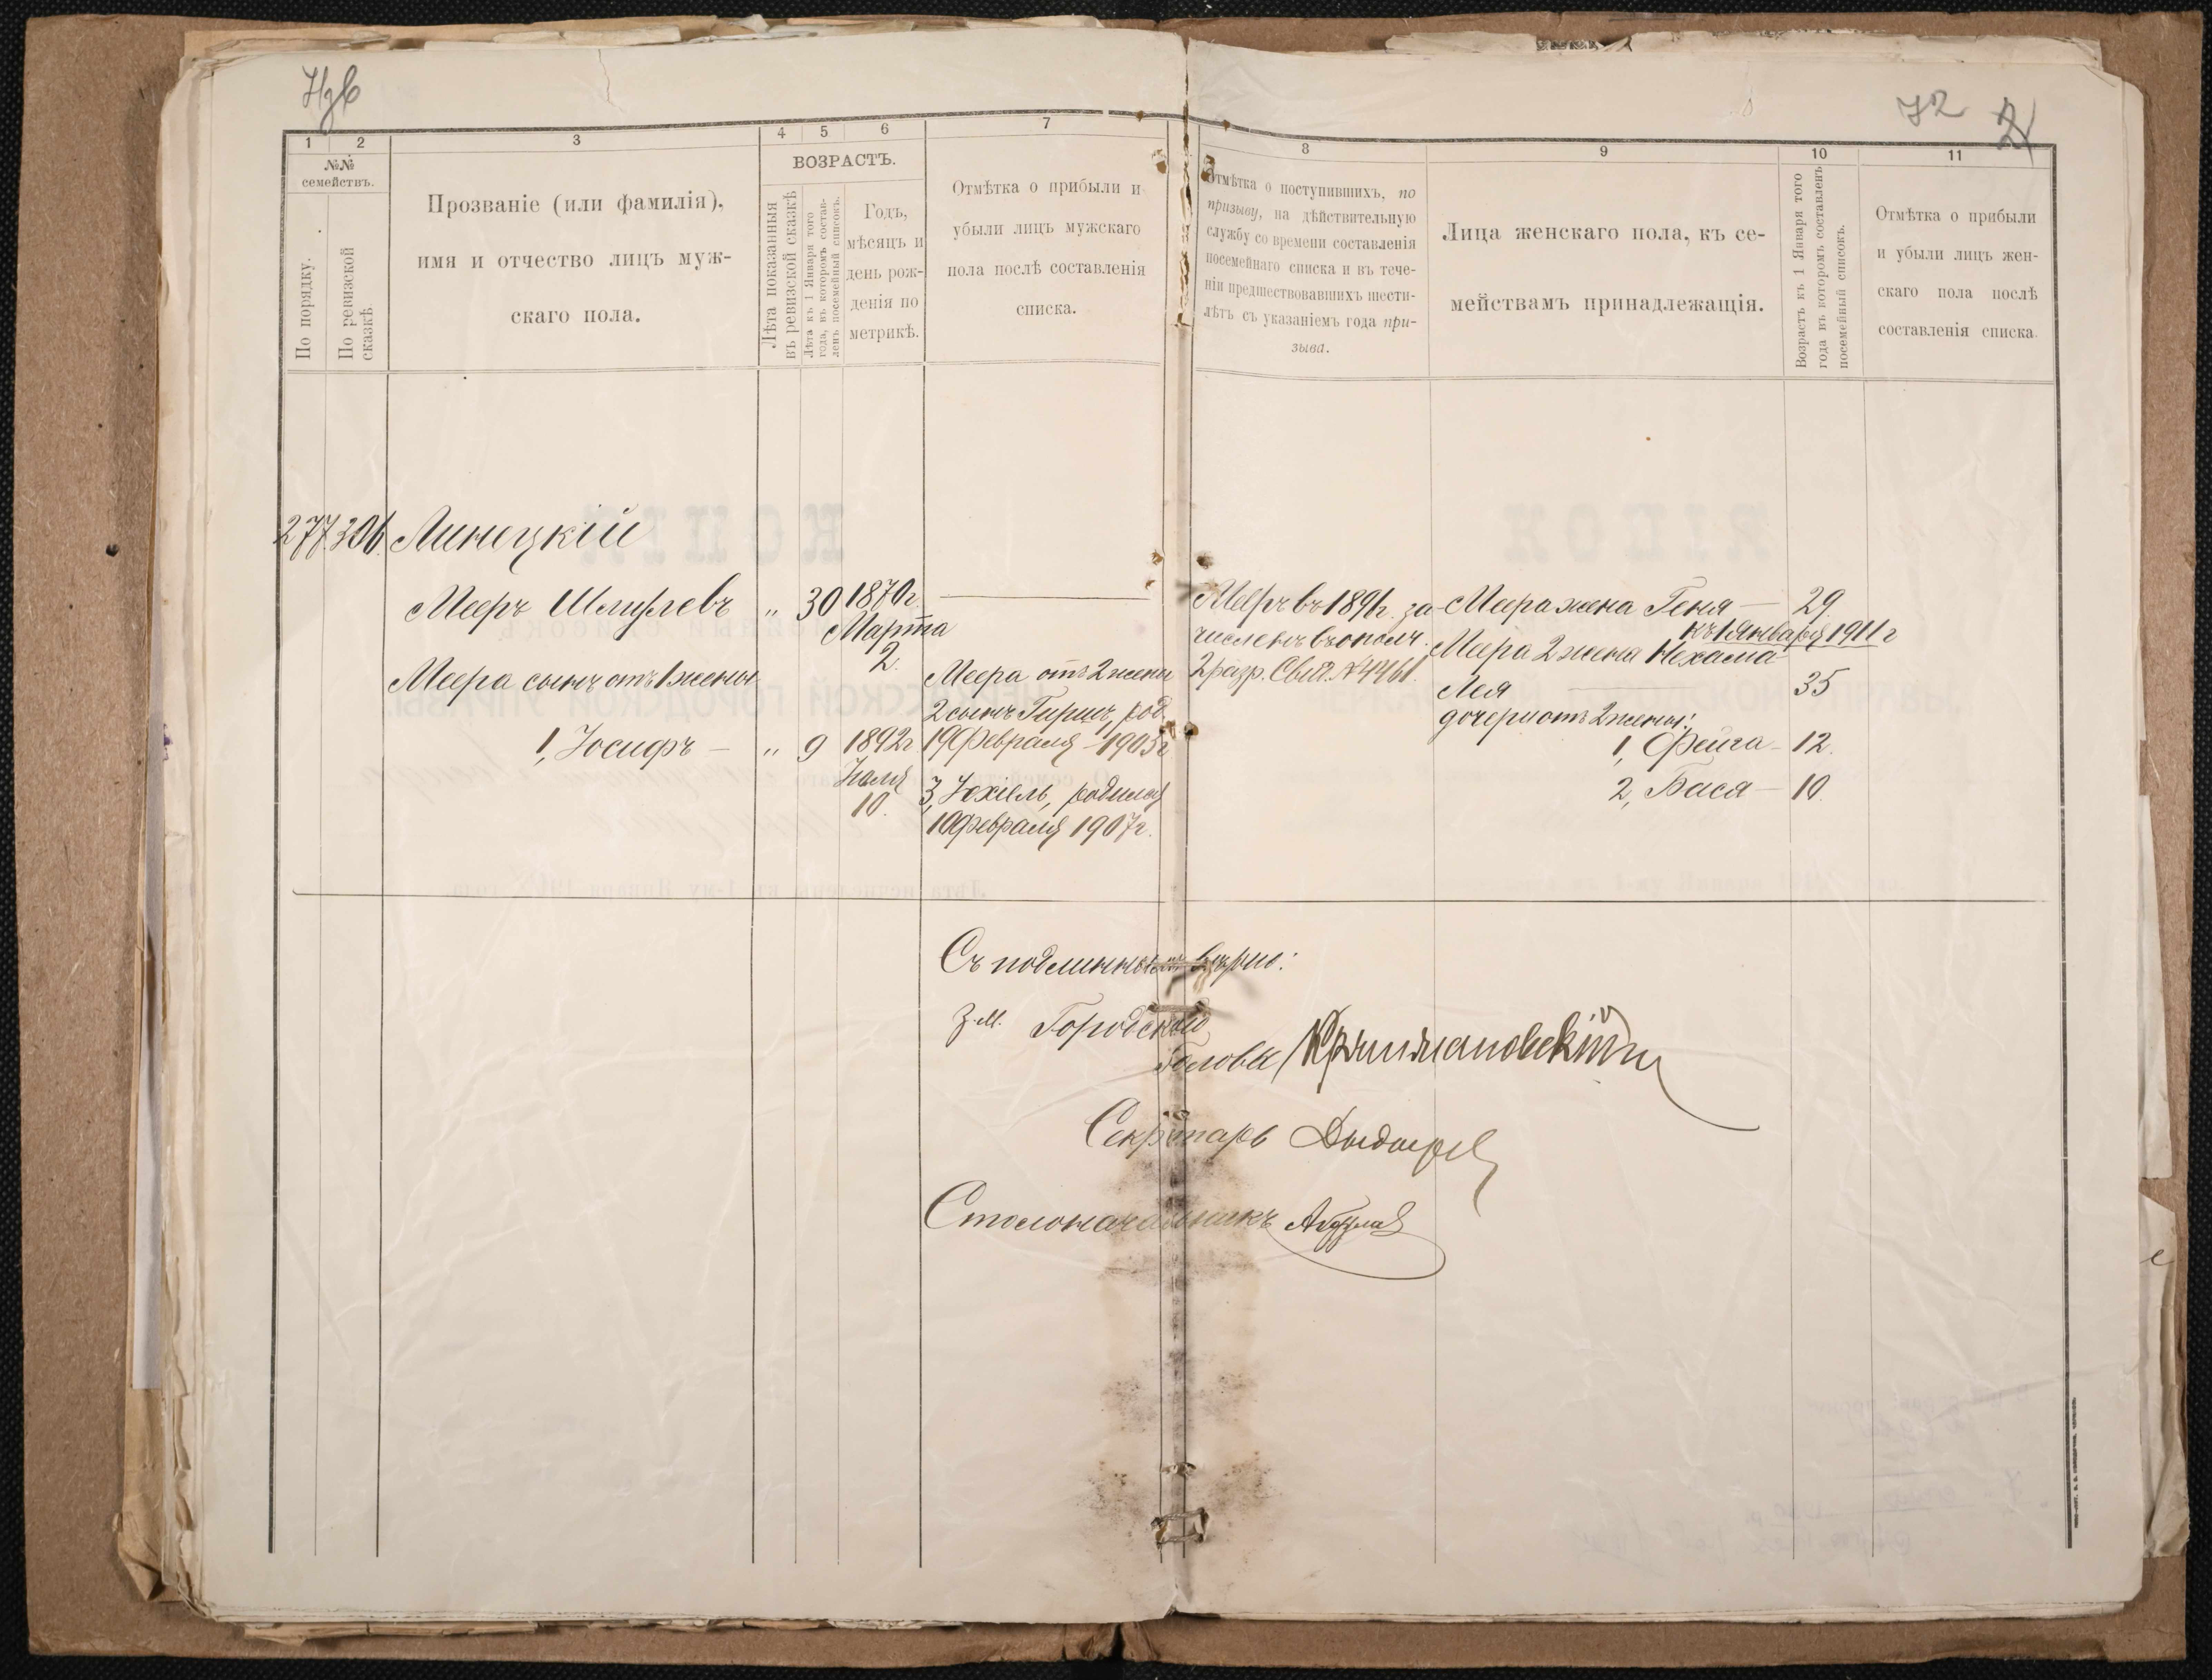 72
1
2
3
4
5
6
7
№№ семействъ.
По порядку.
По ревизской сказкѣ
Прозваніе (или фамилія),
имя и отчество лицъ муж-
скаго пола.
ВОЗРАСТЪ.
Лѣта показанныя
въ ревизской сказкѣ
Лѣта къ 1 Января того
года, въ которомъ состав-
ленъ посемейный списокъ.
Годъ,
мѣсяцъ и
день рож-
денія по
метрикѣ.
Отмѣтка о прибыли и
убыли лицъ мужскаго
пола послѣ составленія
списка.
8
9
10
11
Отмѣтка о поступившихъ, по
призыву, на дѣйствительную
службу со времени составленія
посемейнаго списка и въ тече-
ніи предшествовавшихъ шести-
лѣтъ съ указаніемъ года при-
зыва.
Лица женскаго пола, къ се-
мействамъ принадлежащія.
Возрастъ къ 1 Января того
года въ которомъ составленъ
посемейный списокъ.
Отмѣтка о прибыли
и убыли лицъ жен-
скаго пола послѣ
составленія списка.
277. 306. Линецкій
Мееръ Шмулевъ „ 30 1870г.
Марта
2.
Меера сынъ отъ 1 жены
1, Іосифъ — „ 9 1892г
Іюля
10.
Меера отъ 2 жены
2 сынъ Гиршъ, род.
19 Февраля 1905г
3, Іехіель, родился
10 Февраля 1907г.
Мееръ въ 1891г. за-
численъ въ ополч.
2 разр. Свид. № 4461.
Меера жена Геня — 29
къ 1 Января 1911 г
Меера 2 жена Нехама
Лея — 35
дочери отъ 2 жены:
1, Фейга — 12.
2, Бася — 10.
Съ подлиннымъ вѣрно:
З.м. Городского
Головы
Секретарь
Столоначальникъ